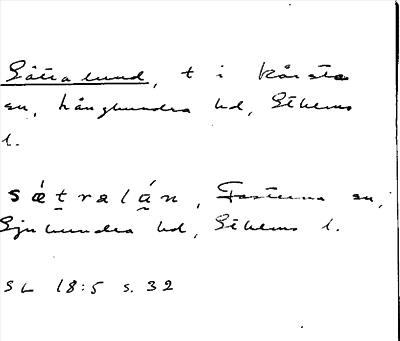 Sätralund, t i Kårsta
sn, Långhundra hd, Sthlms
l.
sǽtralán, Fasterna sn,
Sjuhundra hd, Sthlms l.
SL 18:5 s. 32